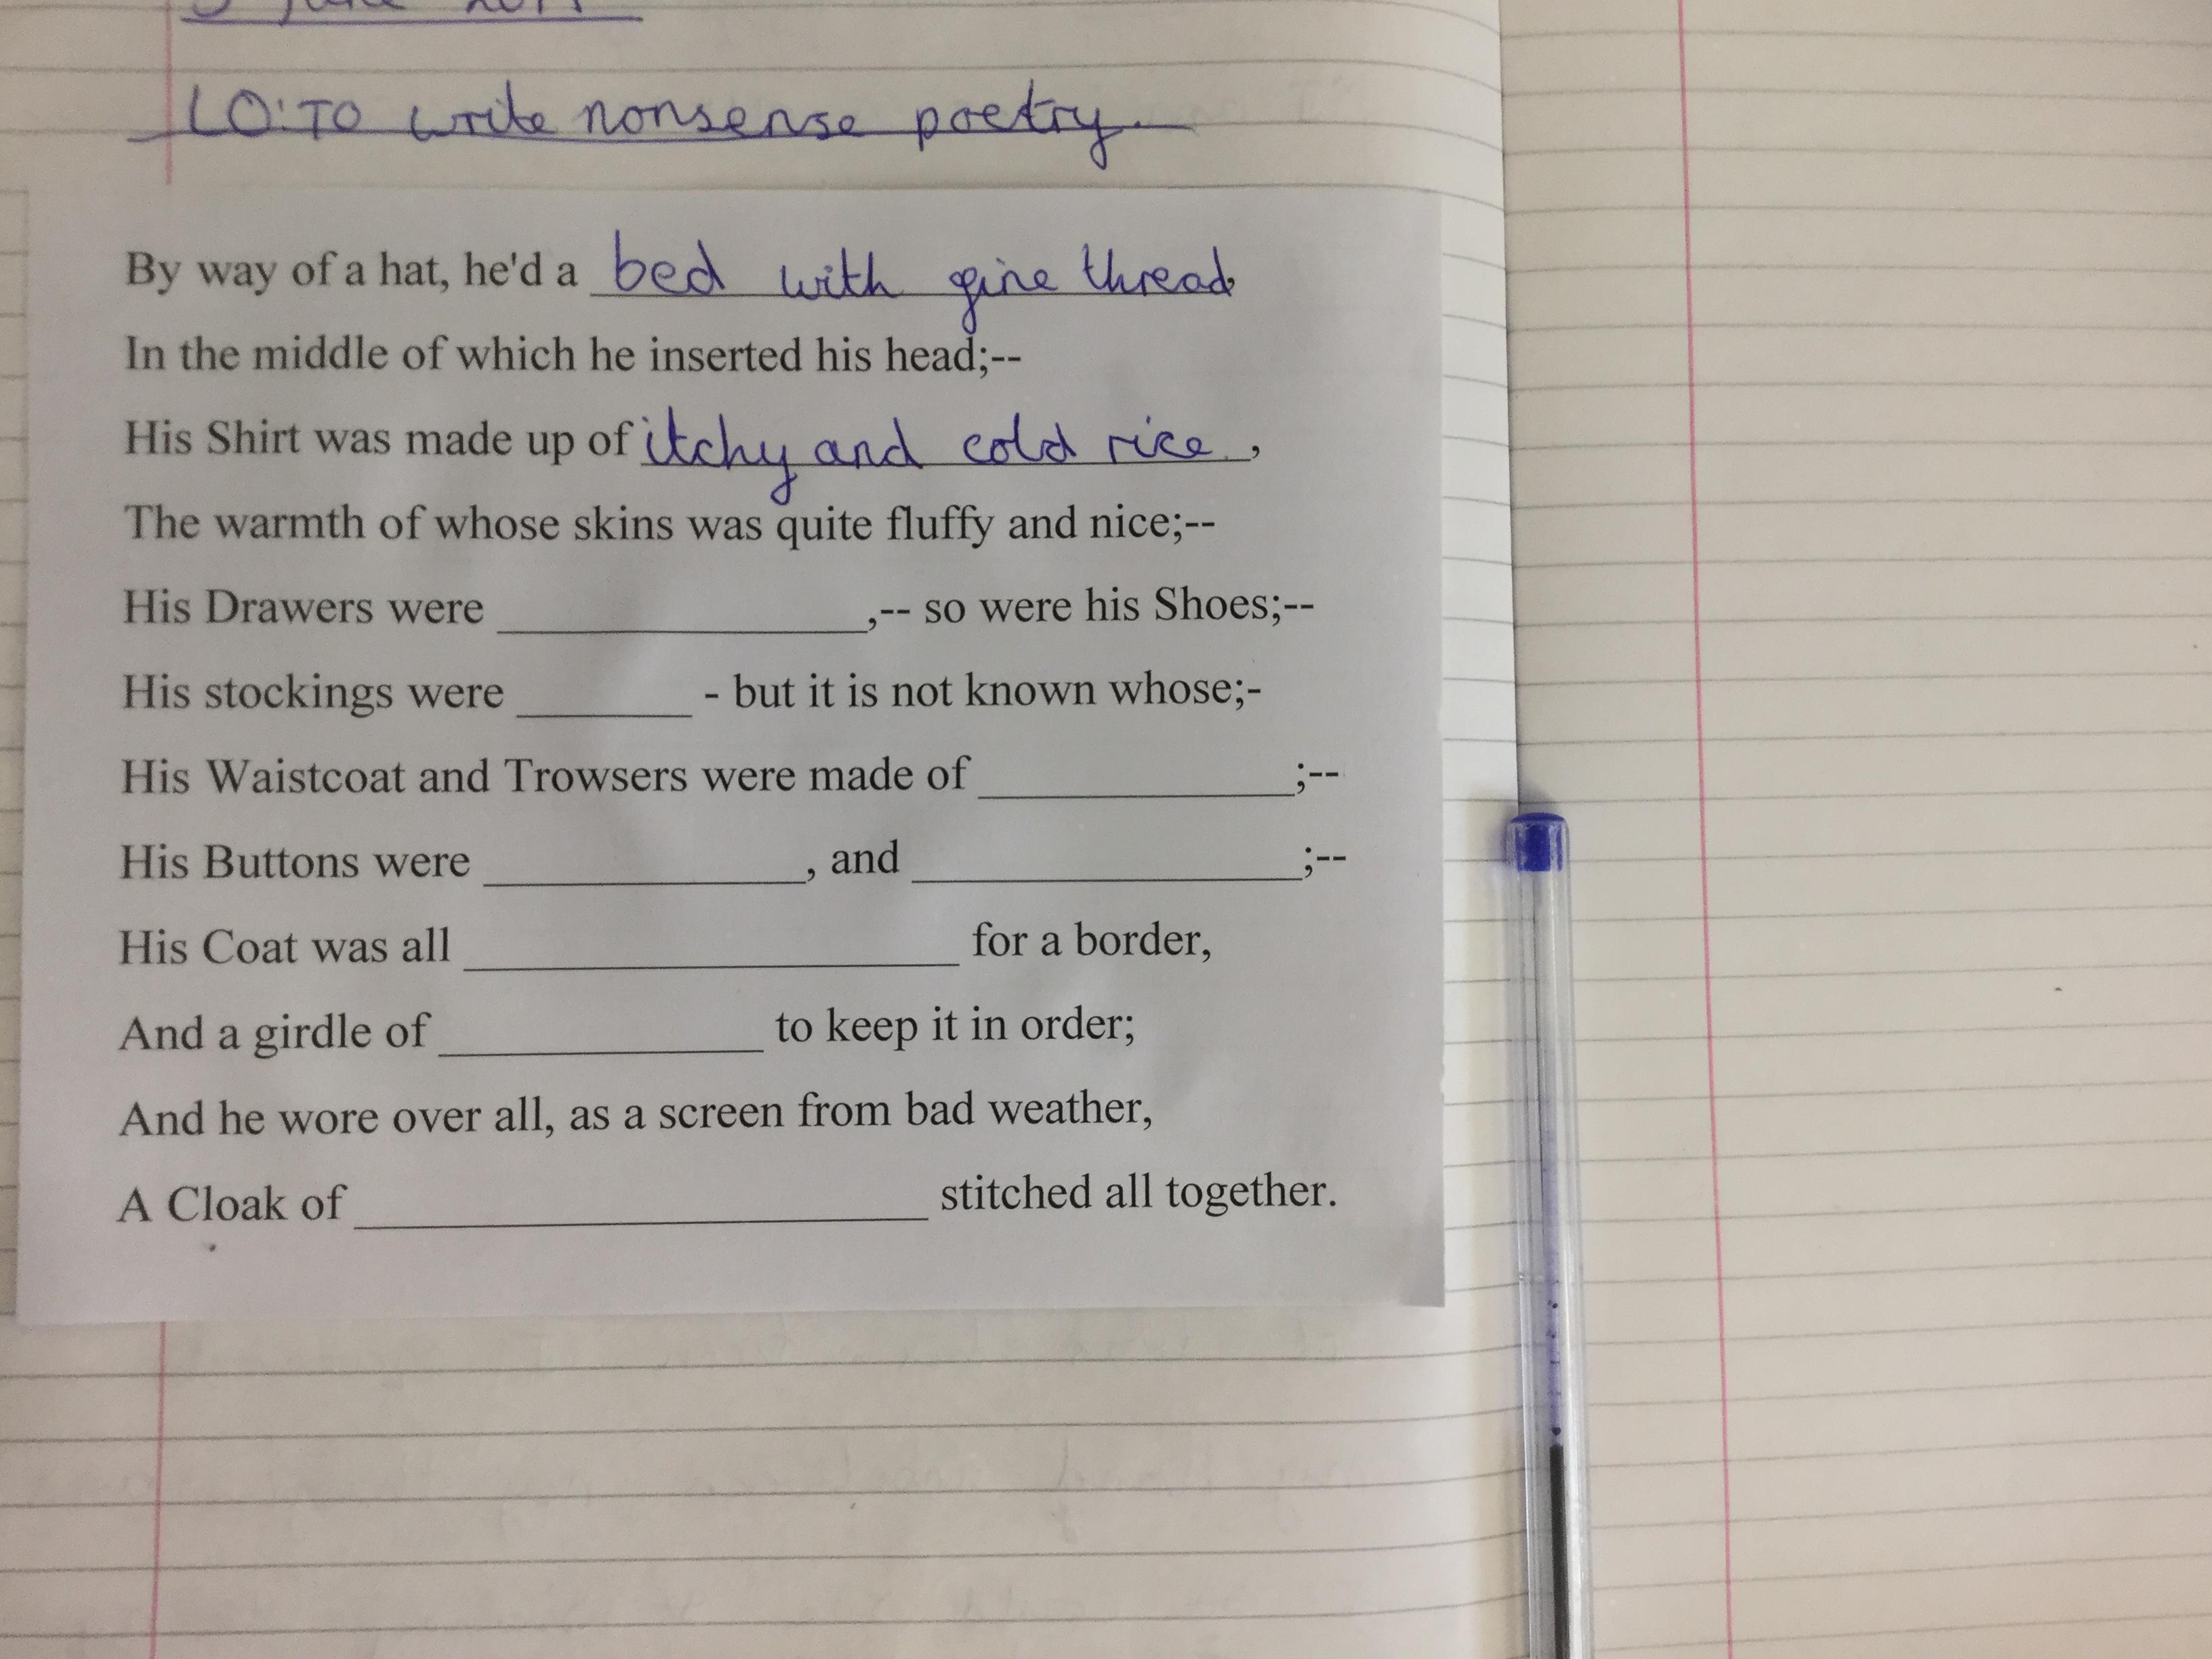 LO: TO write nonsense poetry.
By way of a hat, he'd a bed with fine thread,
In the middle of which he inserted his head;--
His Shirt was made up of itchy and cold rice,
The warmth of whose skins was quite fluffy and nice;--
His Drawers were ____________,-- so were his Shoes;--
His stockings were ______ - but it is not known whose;-
His Waistcoat and Trowsers were made of ____________;--
His Buttons were ____________, and ______________;--
His Coat was all __________________ for a border,
And a girdle of ____________ to keep it in order;
And he wore over all, as a screen from bad weather,
A Cloak of _____________________ stitched all together.